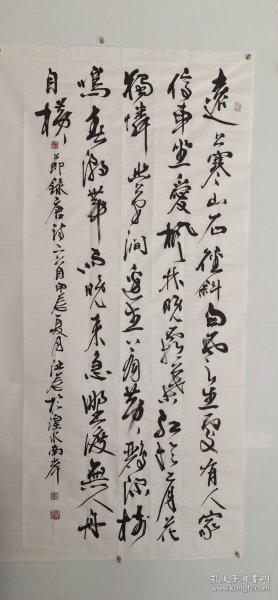 遠上寒山石徑斜白雲生處有人家
停車坐愛楓林晚霜葉紅於二月花
獨憐幽草澗邊生上有黃鸝深樹
鳴春潮帶雨晚來急野渡無人舟
自橫
節錄唐詩二首甲辰夏月
水南岸
孔夫子旧书网